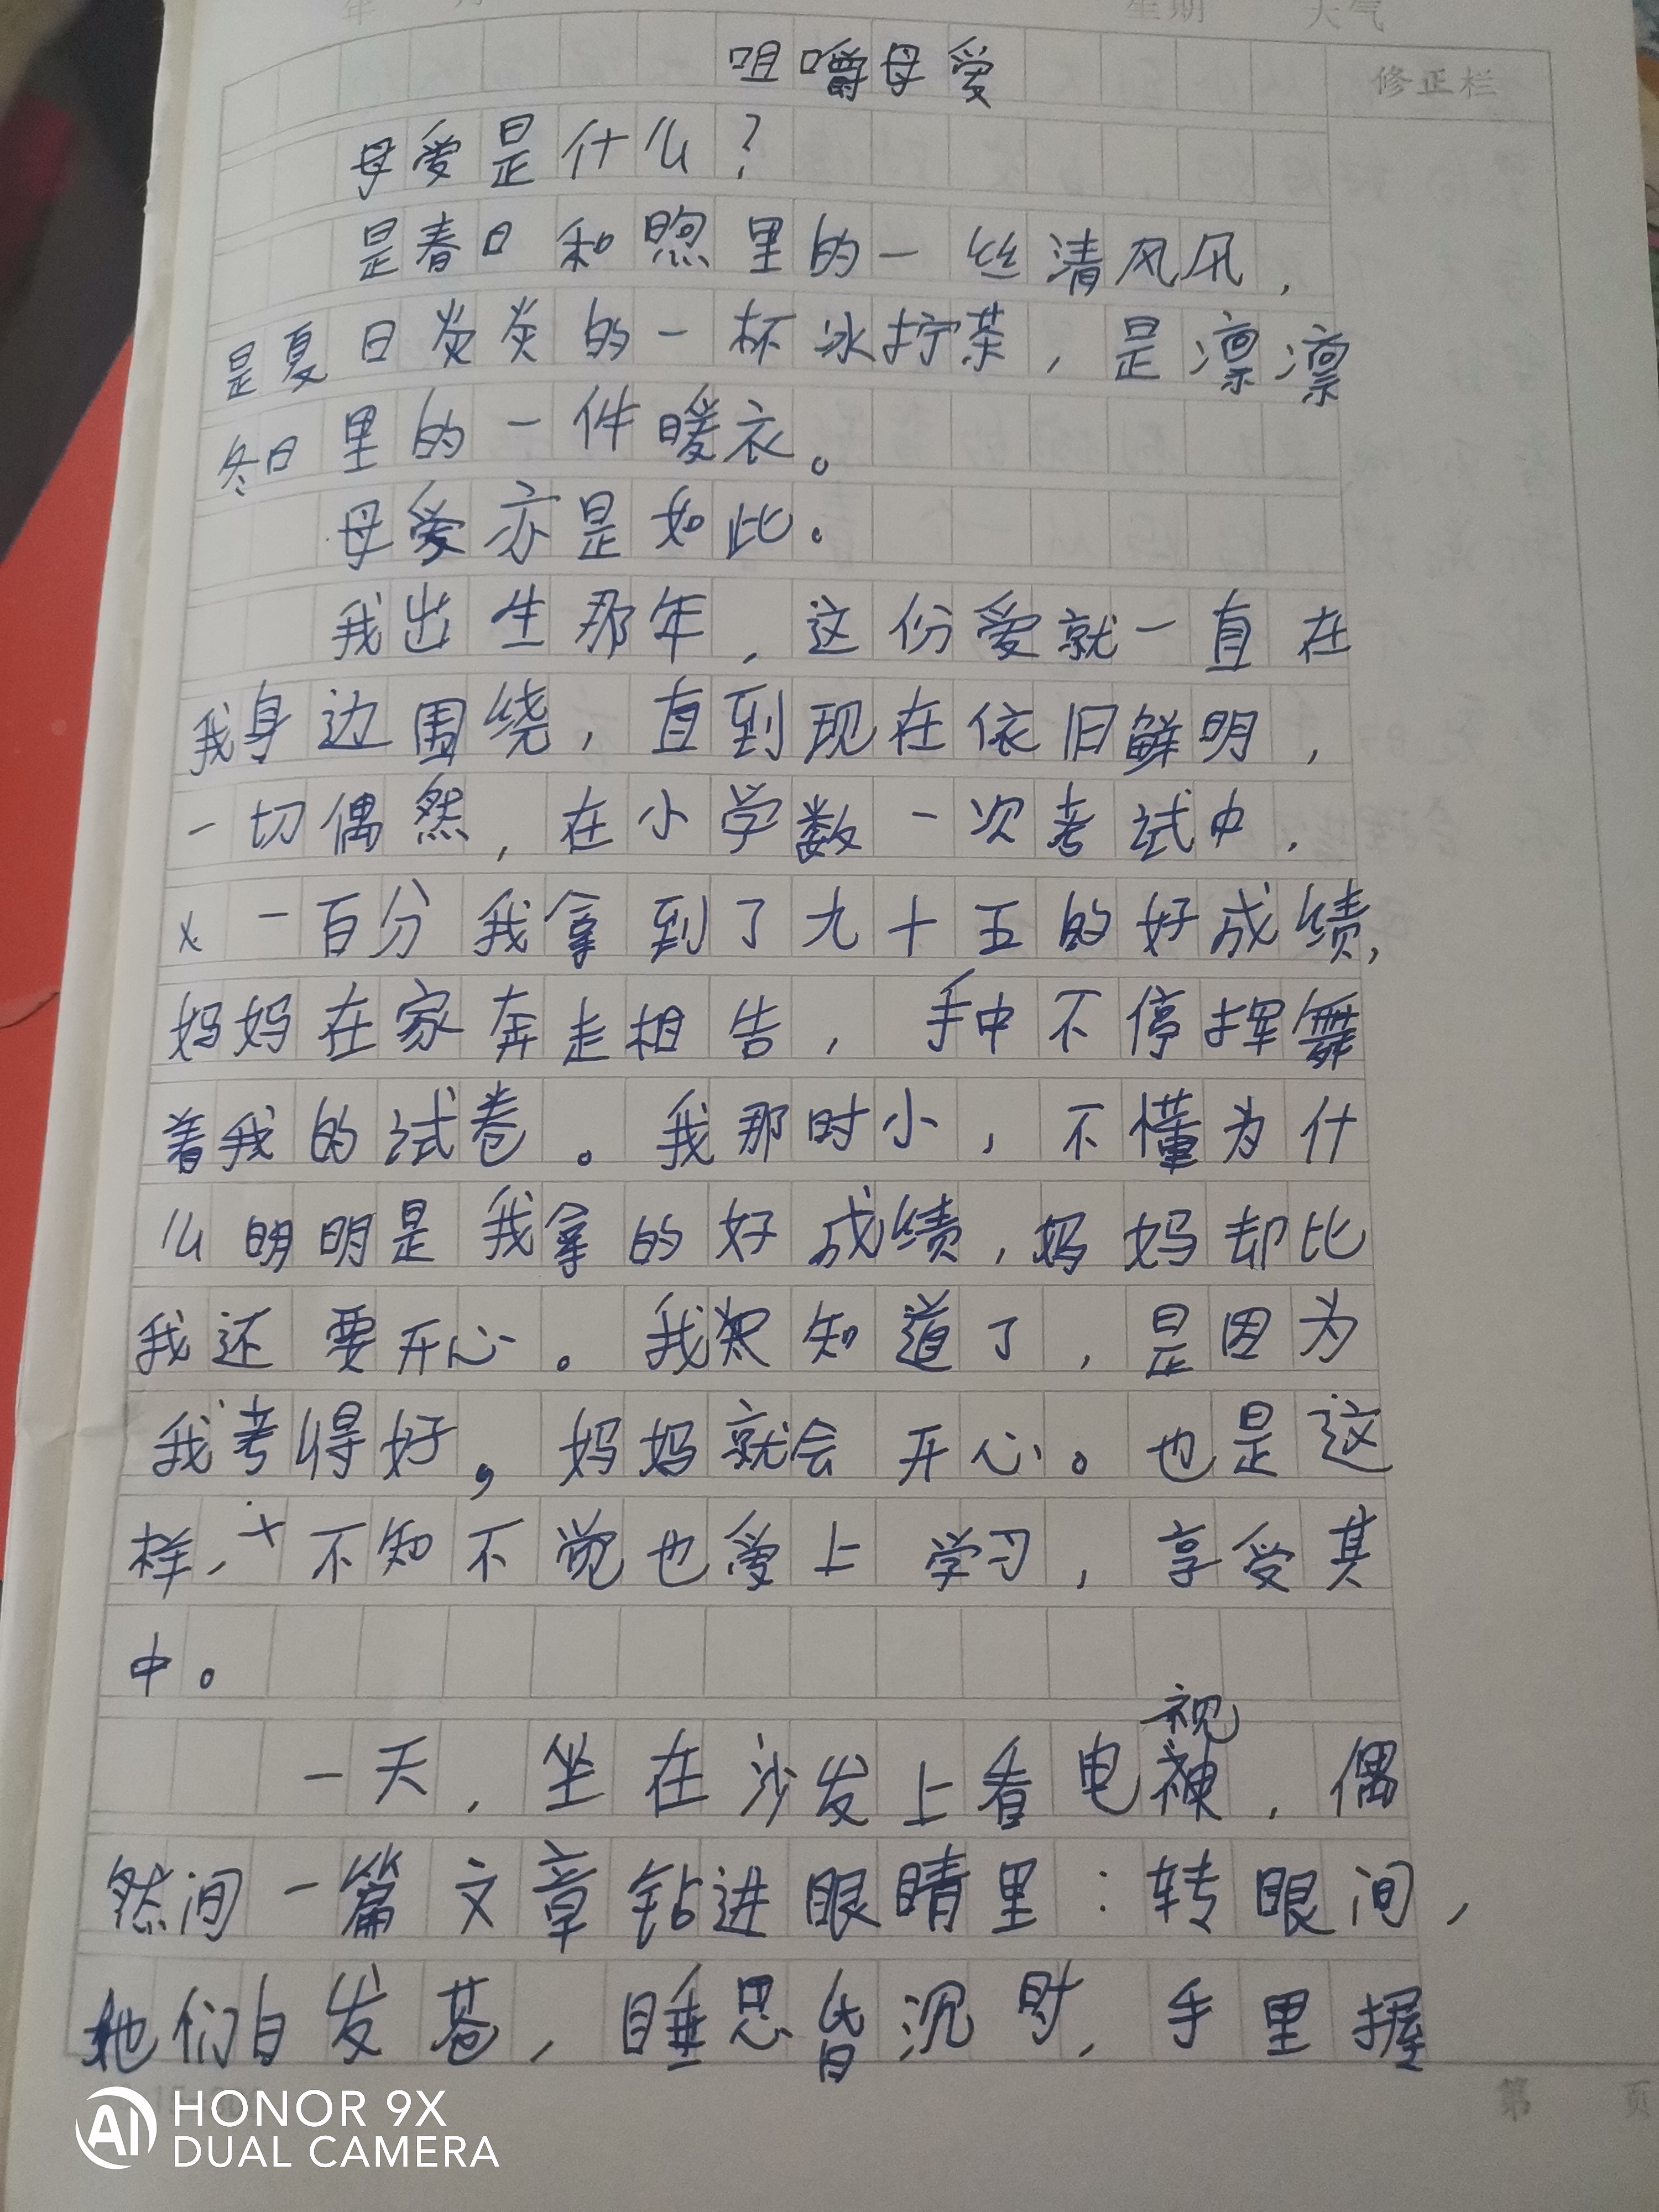 年 月 星期 天气
咀嚼母爱
修正栏
母爱是什么？
是春日和煦里的一丝清风风，
是夏日炎炎的一杯冰拧茶，是凛凛
冬日里的一件暖衣。
母爱亦是如此。
我出生那年，这份爱就一直在
我身边围绕，直到现在依旧鲜明，
一切偶然，在小学数一次考试中，
x 一百分我拿到了九十五的好成绩，
妈妈在家奔走相告，手中不停挥舞
着我的试卷。我那时小，不懂为什
么明明是我拿的好成绩，妈妈却比
我还要开心。我知道了，是因为
我考得好，妈妈就会开心。也是这
样，不知不觉也爱上学习，享受其
中。
视
一天，坐在沙发上看电，偶
然间一篇文章钻进眼睛里：转眼间，
她们白发苍，睡思昏沉时，手里握
第 页
HONOR 9X
DUAL CAMERA